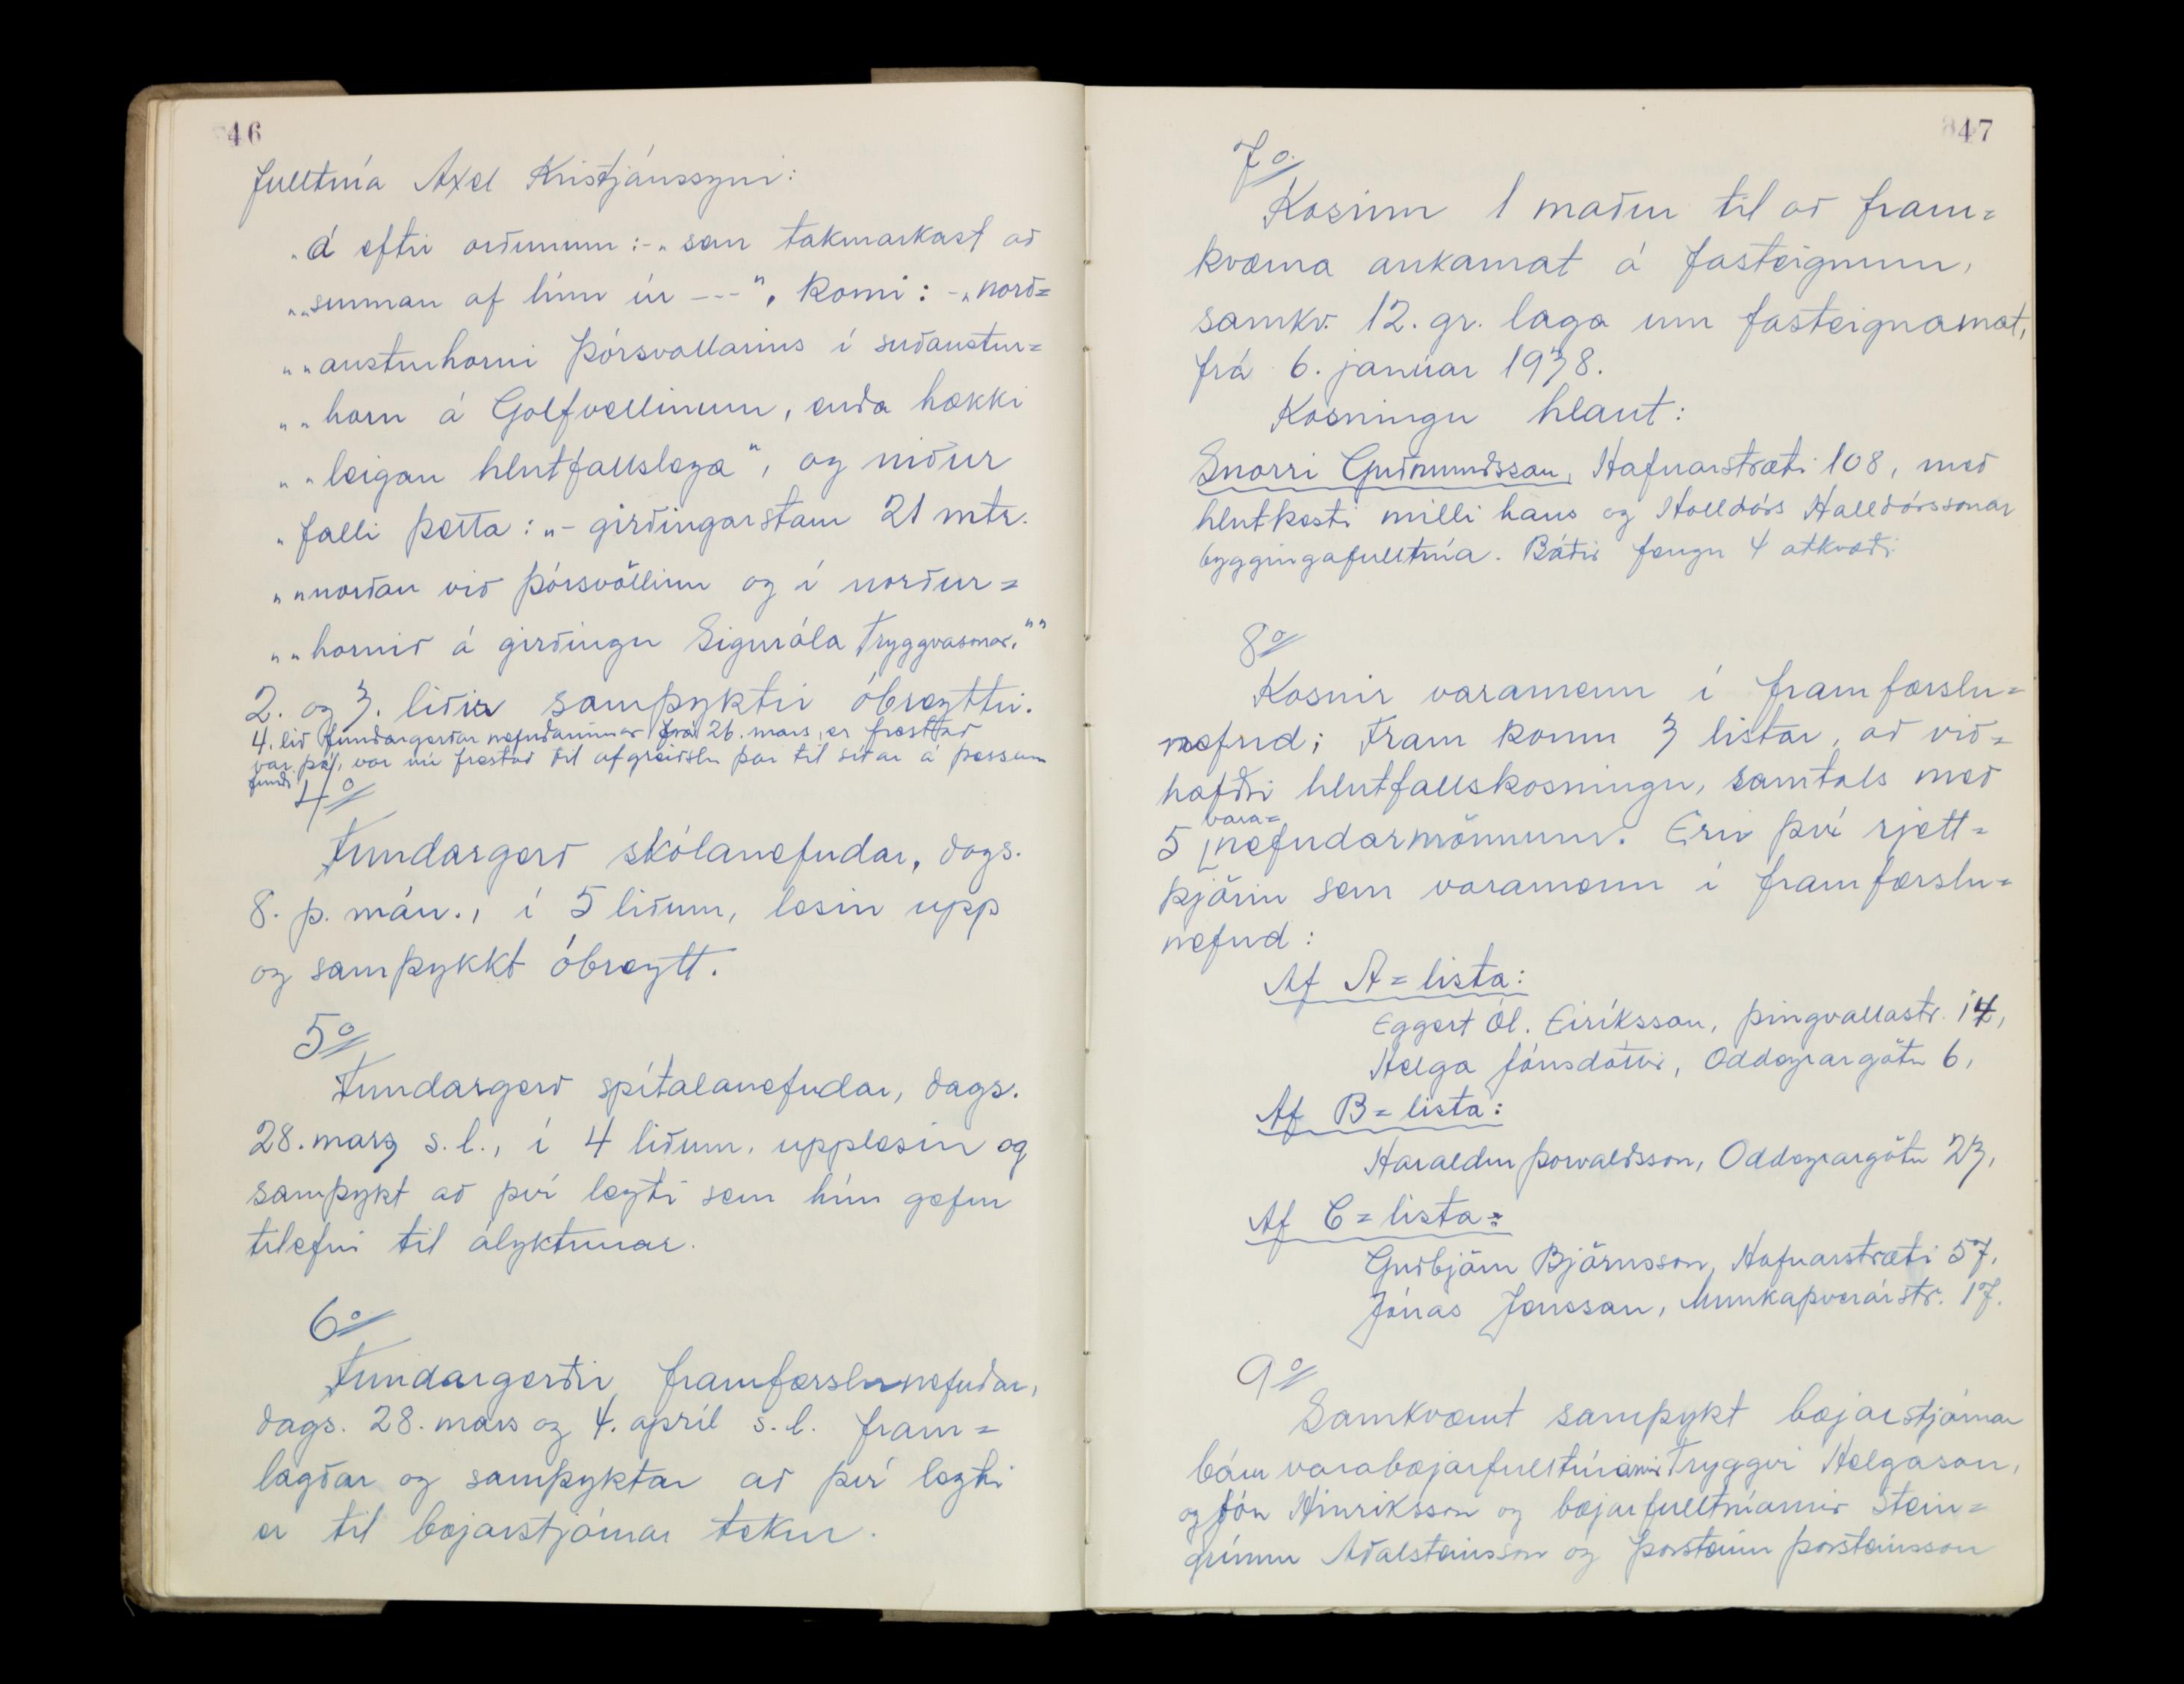 46
fulltrúa Axel Kristjánssyni:
„á eftir orðunum: - „sem takmarkast að
„„sunnan af línu úr --- “, komi: - „norð=
„„austurhorni Þórsvallarins í suðaustur=
„„horn á Golfvellinum, enda hækki
„„leigan hlutfallslega“, og niður
„falli þetta: „- girðingarstam 21 mtr.
„„norðan við Þórsvöllinn og í norður=
„„hornið á girðingu Siguróla Tryggvasonar.““
2. og 3. liðir samþyktir óbreyttir.
4. lið fundargerðar nefndarinnar frá 26. mars, er frestað
var þá, var nú frestað til afgreiðslu þar til síðar á þessum
fundi.
4º
Fundargerð skólanefndar, dags.
8. þ. mán., í 5 liðum, lesin upp
og samþykkt óbreytt.
5º
Fundargerð spítalanefndar, dags.
28. marz s.l., í 4 liðum, upplesin og
samþykt að því leyti sem hún gefur
tilefni til ályktunar.
6º
Fundargerðir framfærslunefndar,
dags. 28. mars og 4. apríl s.l. fram=
lagðar og samþyktar að því leyti
er til bæjarstjórnar tekur.
47
7º
Kosinn 1 maður til að fram=
kvæma aukamat á fasteignum,
samkv. 12. gr. laga um fasteignamat,
frá 6. janúar 1938.
Kosningu hlaut:
Snorri Guðmundsson, Hafnarstræti 108, með
hlutkesti milli hans og Halldórs Halldórssonar
byggingafulltrúa. Báðir fengu 4 atkvæði
8º
Kosnir varamenn í framfærslu=
nefnd; Fram komu 3 listar, að við=
hafðri hlutfallskosningu, samtals með
vara=
5 nefndarmönnum. Eru því rjett=
kjörin sem varamenn í framfærslu=
nefnd:
Af A=lista:
Eggert Ól. Eiríksson, Þingvallastr. 14,
Helga Jónsdóttir, Oddeyrargötu 6,
Af B=lista:
Haraldur Þorvaldsson, Oddeyrargötu 23,
Af C=lista:
Guðbjörn Björnsson, Hafnarstræti 57,
Jónas Jensson, Munkaþverárstr. 17.
9º
Samkvæmt samþykt bæjarstjórnar
báru varabæjarfulltrúarnir Tryggvi Helgason,
og Jón Hinriksson og bæjarfulltrúarnir Stein=
grímur Aðalsteinsson og Þorsteinn Þorsteinsson